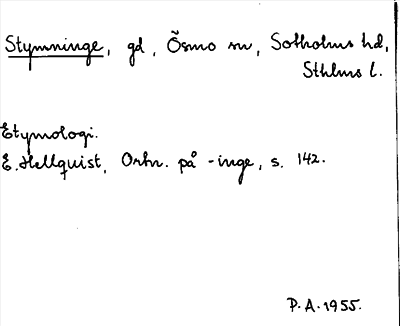 Stymninge, gd, Ösmo sn, Sotholms hd,
Sthlms l.
Etymologi.
E. Hellquist, Ortn. på -inge, s. 142.
P.A. 1955.